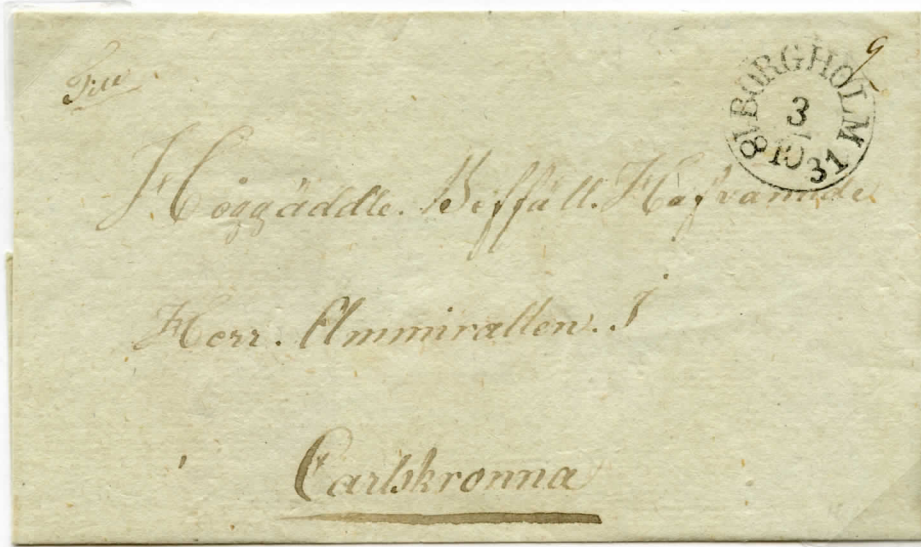 BORGHOLM
3
10
1831
9
Höggäddle. Beffäll. Hafvannde
Herr. Ammirallen. I
Carlskronna